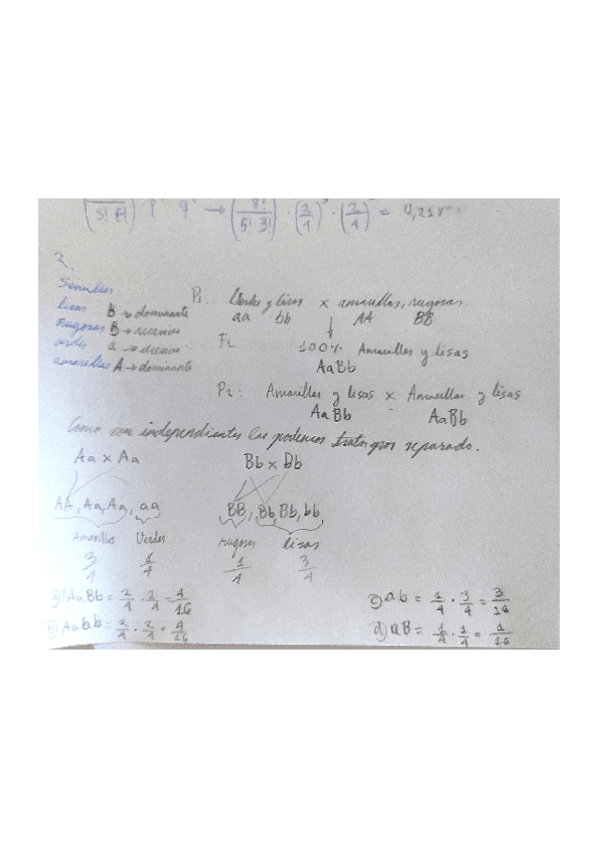 (8! / 5! 3!) · (2/4) · (2/4) = 0,218
2.
Semillas
lisas B → dominante
Rugosas B → recesivo
verdes a → recesivo
amarillas A → dominante
P1: Verdes y lisas x amarillas, rugosas
aa bb AA BB
F1 100% Amarillas y lisas
AaBb
P2: Amarillas y lisas x Amarillas y lisas
AaBb AaBb
Como son independientes las podemos tratar por separado.
Aa x Aa Bb x Bb
AA, Aa, Aa, aa BB, Bb, Bb, bb
Amarillas Verdes rugosas lisas
3/4 1/4 1/4 3/4
a) AaBb = 2/4 · 2/4 = 4/16 c) ab = 1/4 · 3/4 = 3/16
b) Aabb = 2/4 · 2/4 = 4/16 d) aB = 1/4 · 1/4 = 1/16